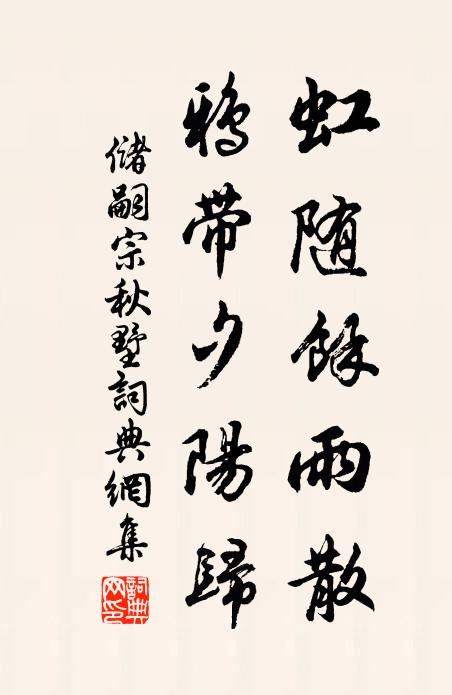 虹随餘雨散
鴉帶夕陽歸
儲嗣宗秋墅詞典網集
詞典網印